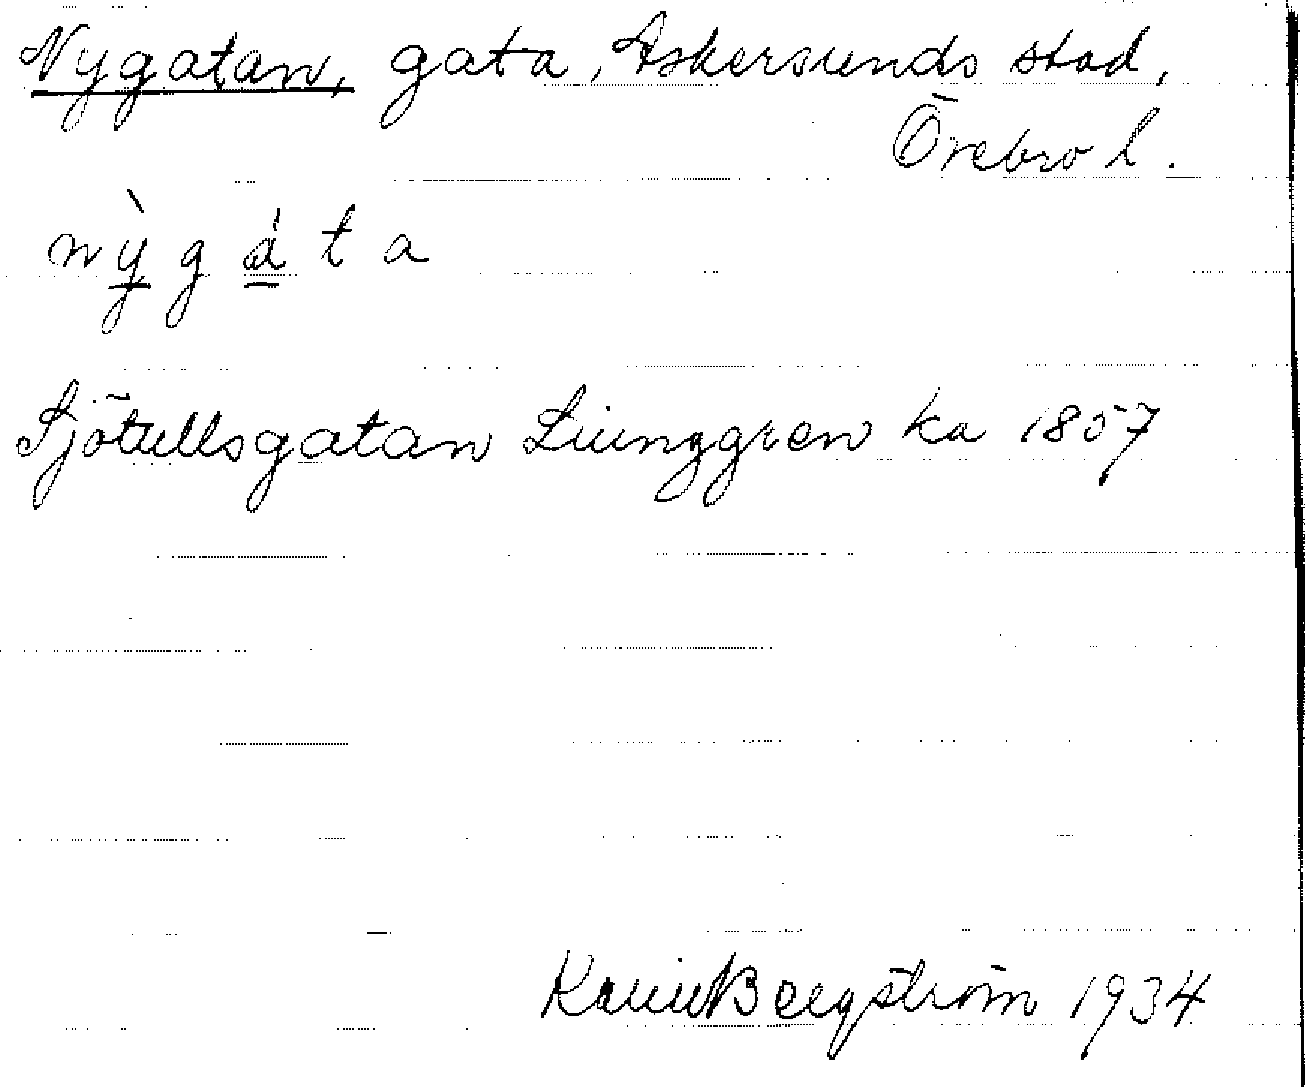 Nygatan, gata, Askersunds stad,
Örebro l.
nỳ g á t a
Sjötullsgatan Liunggren ka 1857
Karin Bergström 1934